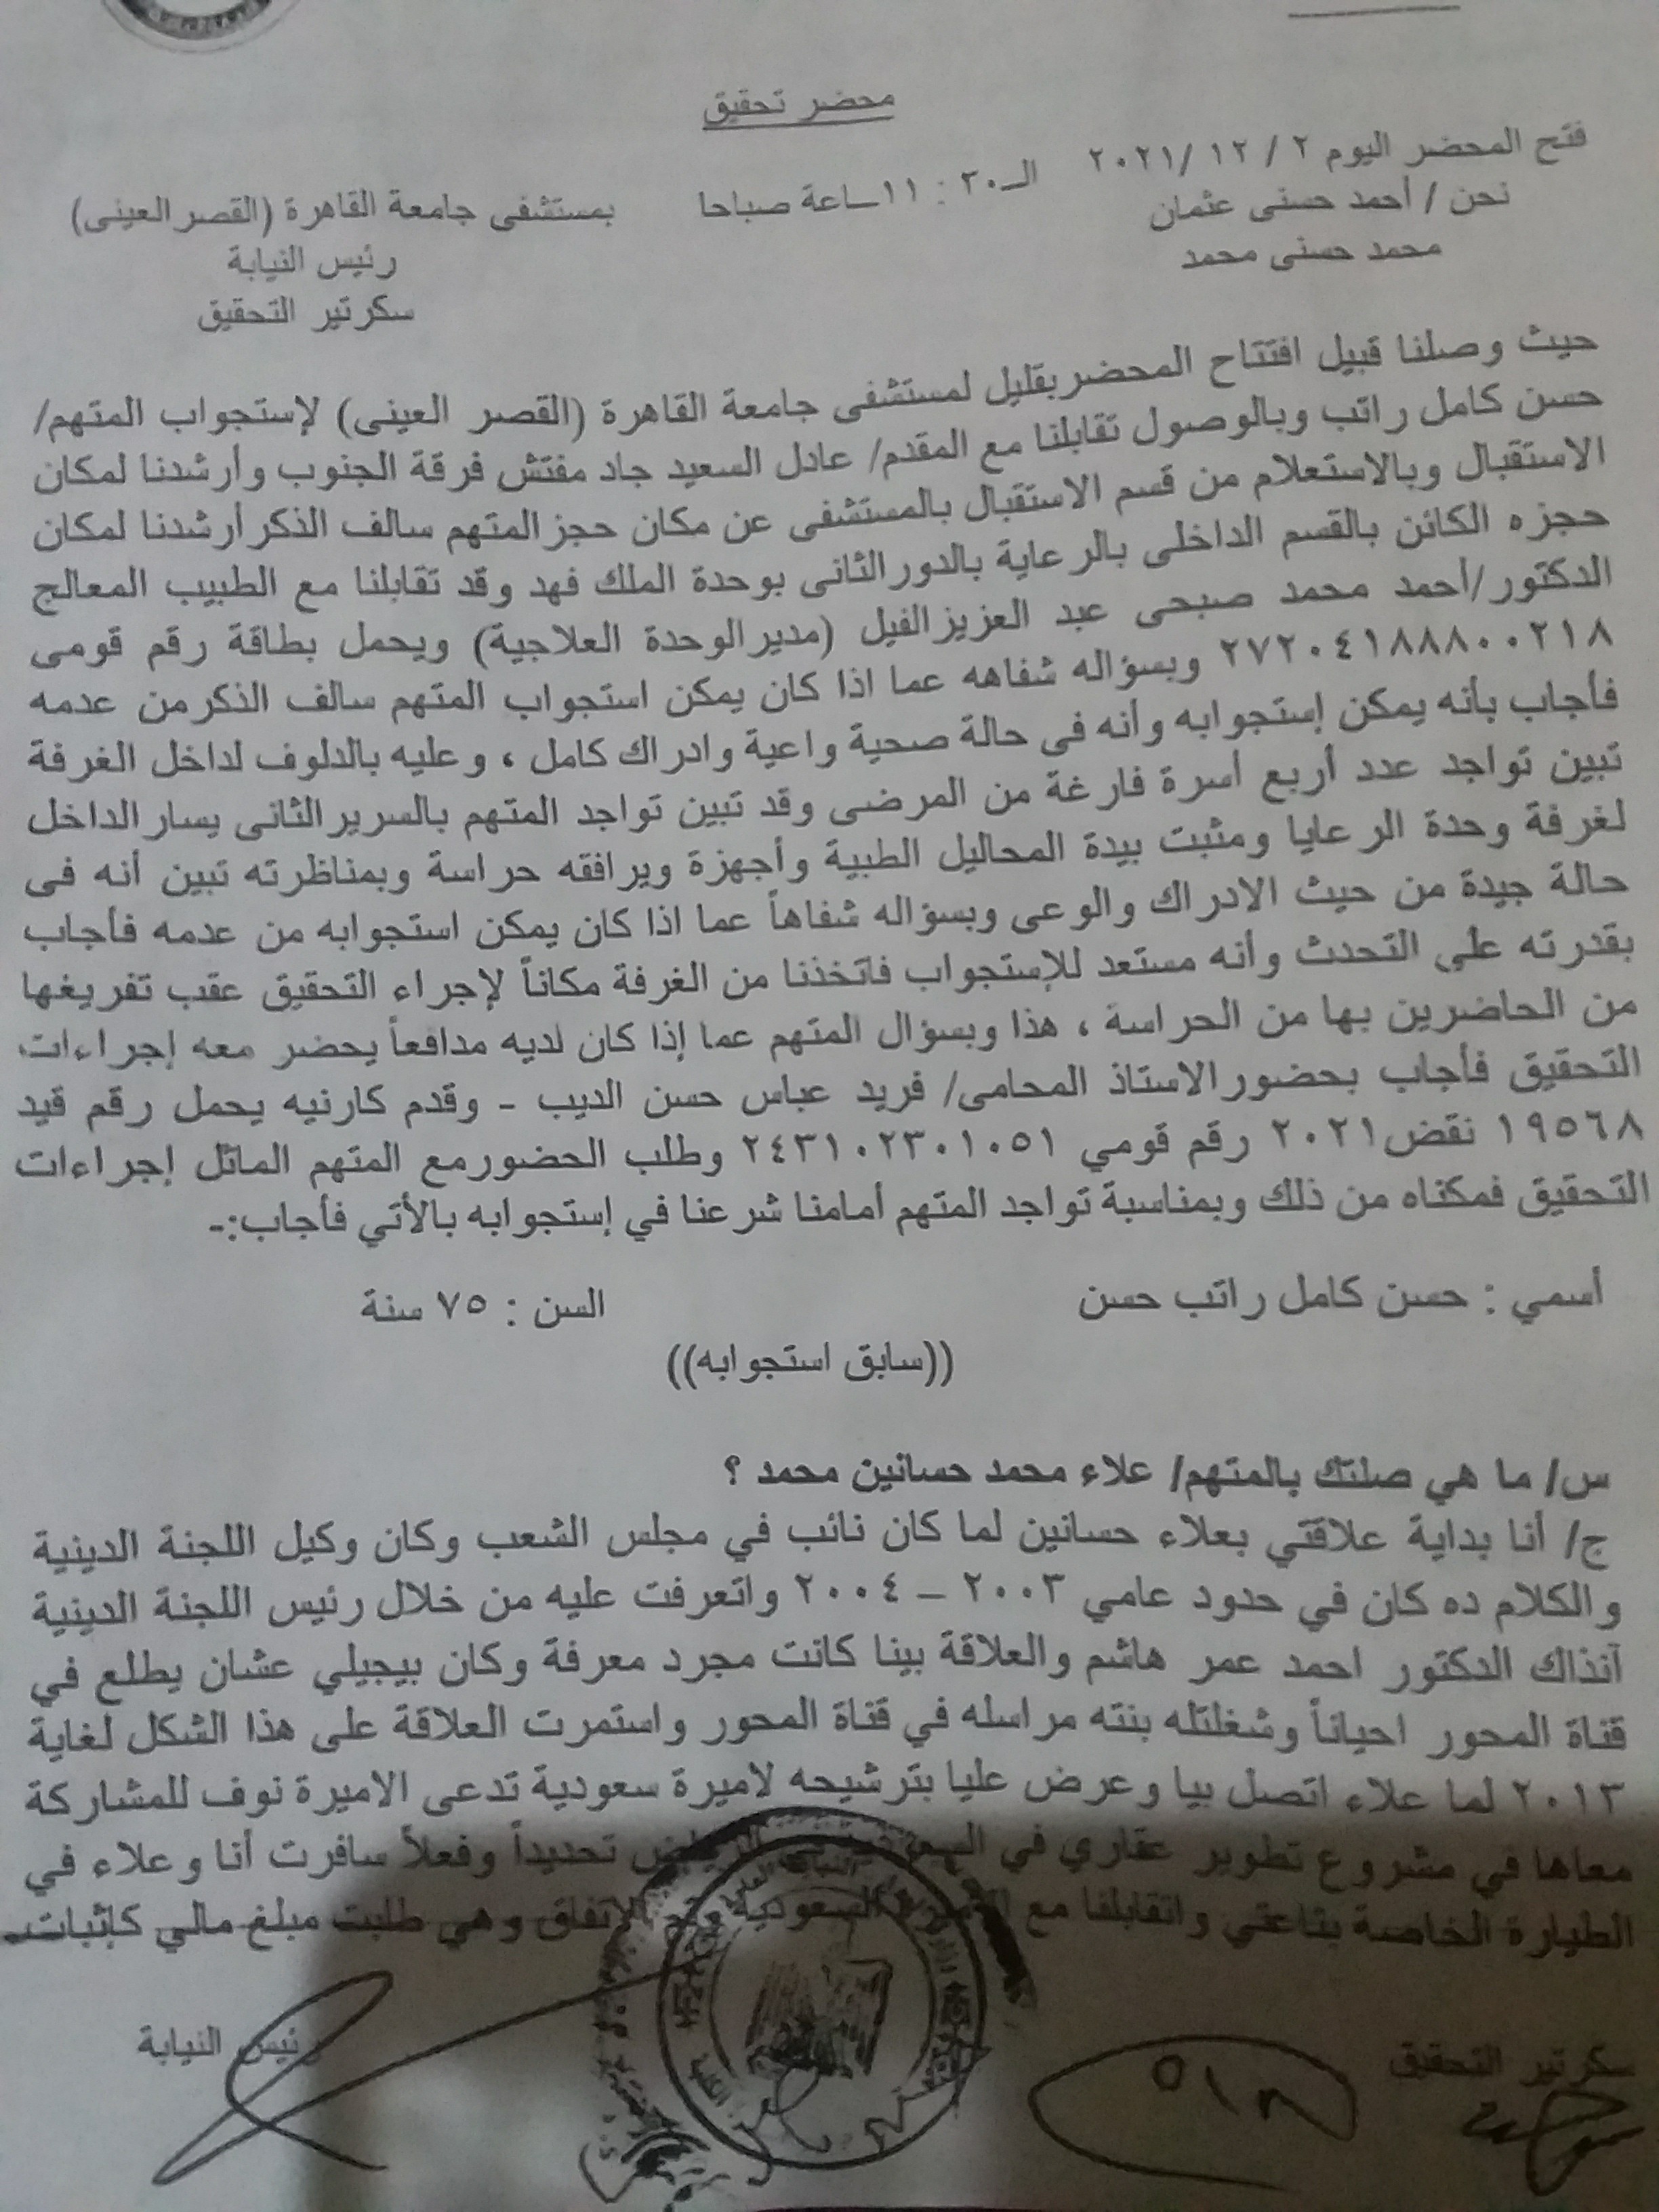 محضر تحقيق
فتح المحضر اليوم ٢ / ١٢ /٢٠٢١ الـ٣٠ : ١١ساعة صباحا بمستشفى جامعة القاهرة (القصر العينى)
نحن / أحمد حسنى عثمان رئيس النيابة
محمد حسنى محمد سكرتير التحقيق
حيث وصلنا قبيل افتتاح المحضر بقليل لمستشفى جامعة القاهرة (القصر العينى) لإستجواب المتهم/
حسن كامل راتب وبالوصول تقابلنا مع المقدم/ عادل السعيد جاد مفتش فرقة الجنوب وأرشدنا لمكان
الاستقبال وبالاستعلام من قسم الاستقبال بالمستشفى عن مكان حجز المتهم سالف الذكر أرشدنا لمكان
حجزه الكائن بالقسم الداخلى بالرعاية بالدور الثانى بوحدة الملك فهد وقد تقابلنا مع الطبيب المعالج
الدكتور/أحمد محمد صبحى عبد العزيز الفيل (مدير الوحدة العلاجية) ويحمل بطاقة رقم قومى
٢٧٢٠٤١٨٨٨٠٠٢١٨ وبسؤاله شفاهه عما اذا كان يمكن استجواب المتهم سالف الذكر من عدمه
فأجاب بأنه يمكن إستجوابه وأنه فى حالة صحية واعية وادراك كامل ، وعليه بالدلوف لداخل الغرفة
تبين تواجد عدد أربع أسرة فارغة من المرضى وقد تبين تواجد المتهم بالسرير الثانى يسار الداخل
لغرفة وحدة الرعايا ومثبت بيدة المحاليل الطبية وأجهزة ويرافقه حراسة وبمناظرته تبين أنه فى
حالة جيدة من حيث الادراك والوعى وبسؤاله شفاهاً عما اذا كان يمكن استجوابه من عدمه فأجاب
بقدرته على التحدث وأنه مستعد للإستجواب فاتخذنا من الغرفة مكاناً لإجراء التحقيق عقب تفريغها
من الحاضرين بها من الحراسة ، هذا وبسؤال المتهم عما إذا كان لديه مدافعاً يحضر معه إجراءات
التحقيق فأجاب بحضور الاستاذ المحامى/ فريد عباس حسن الديب - وقدم كارنيه يحمل رقم قيد
١٩٥٦٨ نقض ٢٠٢١ رقم قومي ٢٤٣١٠٢٣٠١٠٥١ وطلب الحضور مع المتهم الماثل إجراءات
التحقيق فمكناه من ذلك وبمناسبة تواجد المتهم أمامنا شرعنا في إستجوابه بالأتي فأجاب:-
أسمي : حسن كامل راتب حسن السن : ٧٥ سنة
((سابق استجوابه))
س/ ما هي صلتك بالمتهم/ علاء محمد حسانين محمد ؟
ج/ أنا بداية علاقتي بعلاء حسانين لما كان نائب في مجلس الشعب وكان وكيل اللجنة الدينية
والكلام ده كان في حدود عامي ٢٠٠٣ – ٢٠٠٤ واتعرفت عليه من خلال رئيس اللجنة الدينية
آنذاك الدكتور احمد عمر هاشم والعلاقة بينا كانت مجرد معرفة وكان بيجيلي عشان يطلع في
قناة المحور احياناً وشغلتله بنته مراسله في قناة المحور واستمرت العلاقة على هذا الشكل لغاية
٢٠١٣ لما علاء اتصل بيا وعرض عليا بترشيحه لاميرة سعودية تدعى الاميرة نوف للمشاركة
معاها في مشروع تطوير عقاري في تحديداً وفعلاً سافرت أنا وعلاء في
الطيارة الخاصة بتاعتي واتقابلنا مع السعودية الاتفاق وهي طلبت مبلغ مالي كإثبات
سكرتير التحقيق رئيس النيابة